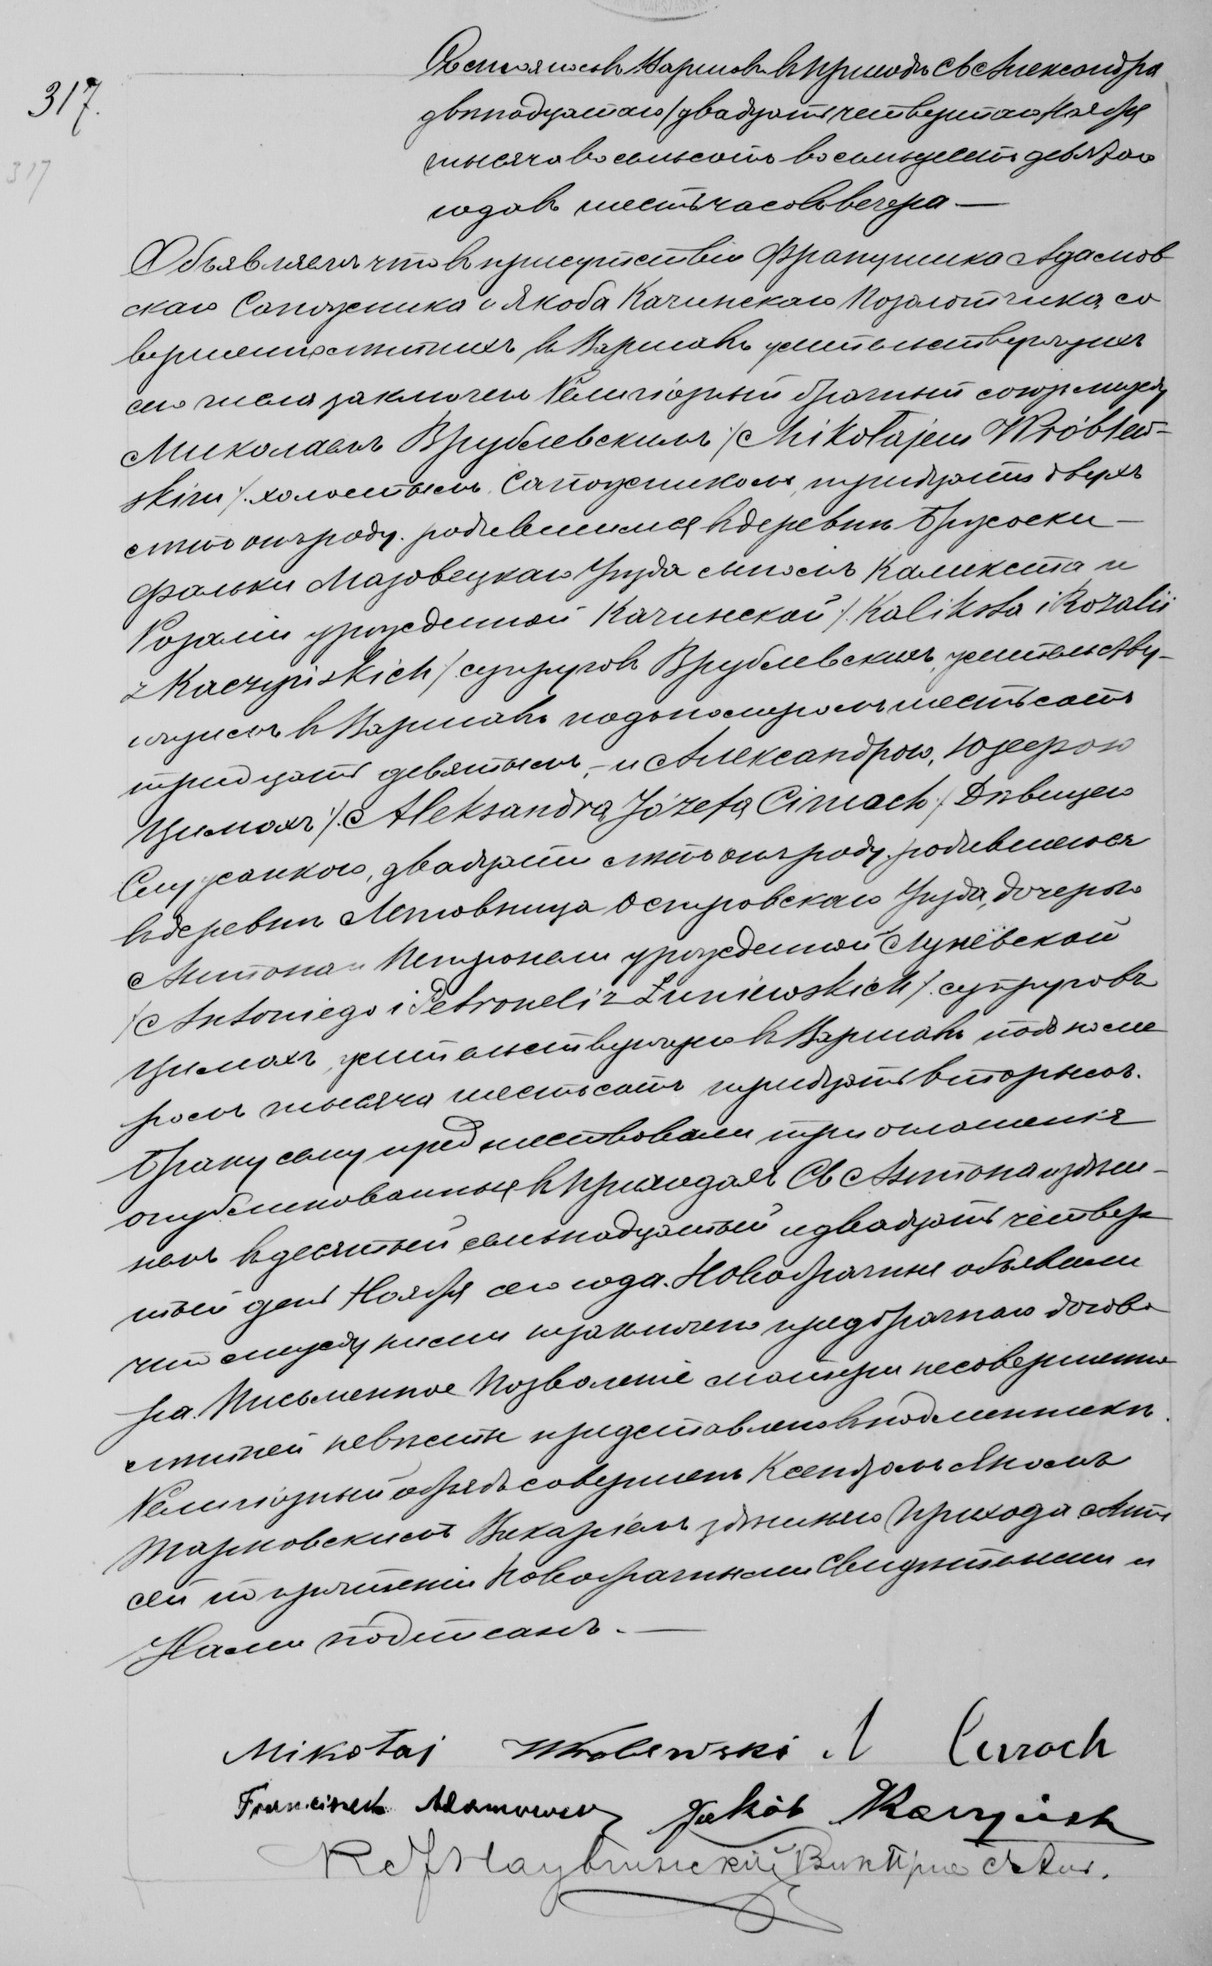 317.
317
Состоялось въ Варшавѣ въ приходѣ Св Александра
двѣнадцатаго / двадцать четвертаго Ноября
тысяча восемьсотъ восемьдесятъ девятаго
года въ шесть часовъ вечера —
Объявляемъ что въ присутствіи Францишка Адамов
скаго Сапожника и Якоба Качинскаго Позолотчика, со
вершеннолѣтнихъ въ Варшавѣ жительствующихъ
сего числа заключенъ Религіозный брачный союзъ между
Миколаемъ Врублевскимъ /Mikołajem Wróblew-
skim/. холостымъ, Сапожникомъ, тридцати двухъ
лѣтъ отъ роду. родившимся въ деревнѣ Бржоски-
Фальки Мазовецкаго Уѣзда сыномъ Каликста и
Розаліи урожденной Качинской /Kaliksta i Rozalii
z Kaczyńskich/ супруговъ Врублевскихъ, жительству-
ющимъ въ Варшавѣ подъ номеромъ шестьсотъ
тридцать девятымъ, — и Александрою, Юзефою
Цимахъ /. Aleksandrą Józefą Cimach / Дѣвицею
Служанкою, двадцати лѣтъ отъ роду, родившеюся
въ деревнѣ Летовница Островскаго Уѣзда, дочерью
Антона и Петронели урожденной Лунёвской
/Antoniego i Petroneli z Łuniewskich/. супруговъ
Цимахъ, жительствующею въ Варшавѣ подъ номе
ромъ тысяча шестьсотъ тридцать вторымъ.
Браку сему предшествовали три оглашенія
опубликованныя въ приходахъ Св Антона и здѣш-
немъ въ десятый семнадцатый и двадцать четвер
тый день Ноября сего года. Новобрачные объявили
что между ними не заключено предбрачнаго догово
ра. Письменное Позволеніе матери несовершенно
лѣтней невѣсты представлено въ подлинникѣ.
Религіозный обрядъ совершенъ Ксендзомъ Яномъ
Марковскимъ Викаріемъ здѣшняго Прихода Актъ
сей по прочтеніи Новобрачными Свидѣтелями и
Нами подписанъ. —
Mikołaj Wrolewski A Cimach
Franciszek Adamowski Jakób Kaczyński